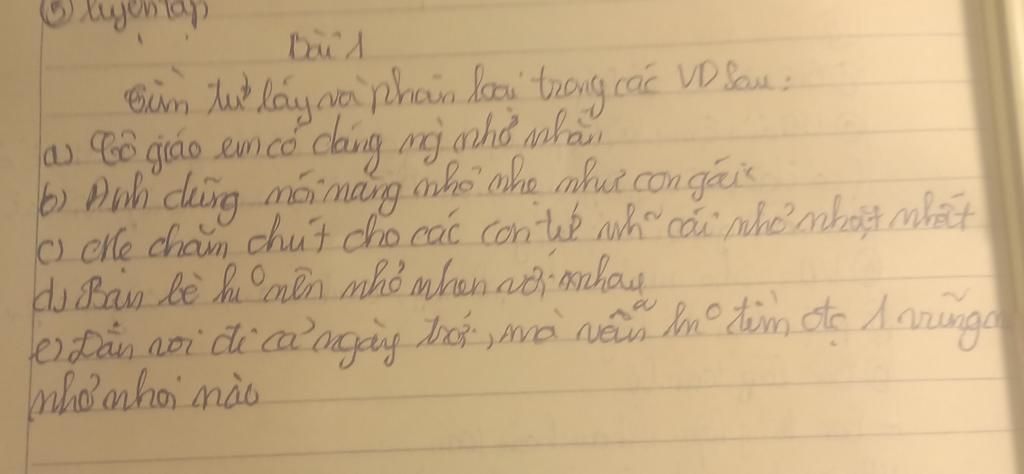 (3) Luyện tập
Bài 1
Tìm từ láy và phân loại trong các VD sau:
a) Cô giáo em có dáng ng nhỏ nhắn
b) Anh dũng nói năng nhỏ nhẹ như con gái
c) Mẹ chăm chút cho các con từ nh~ cái nhỏ nhặt nhất
d) Bạn bè ko nên nhỏ nhen với nhau
e) Đàn voi đi cả ngày trời, mà vẫn ko tìm đc 1 vũng
nhỏ nhoi nào